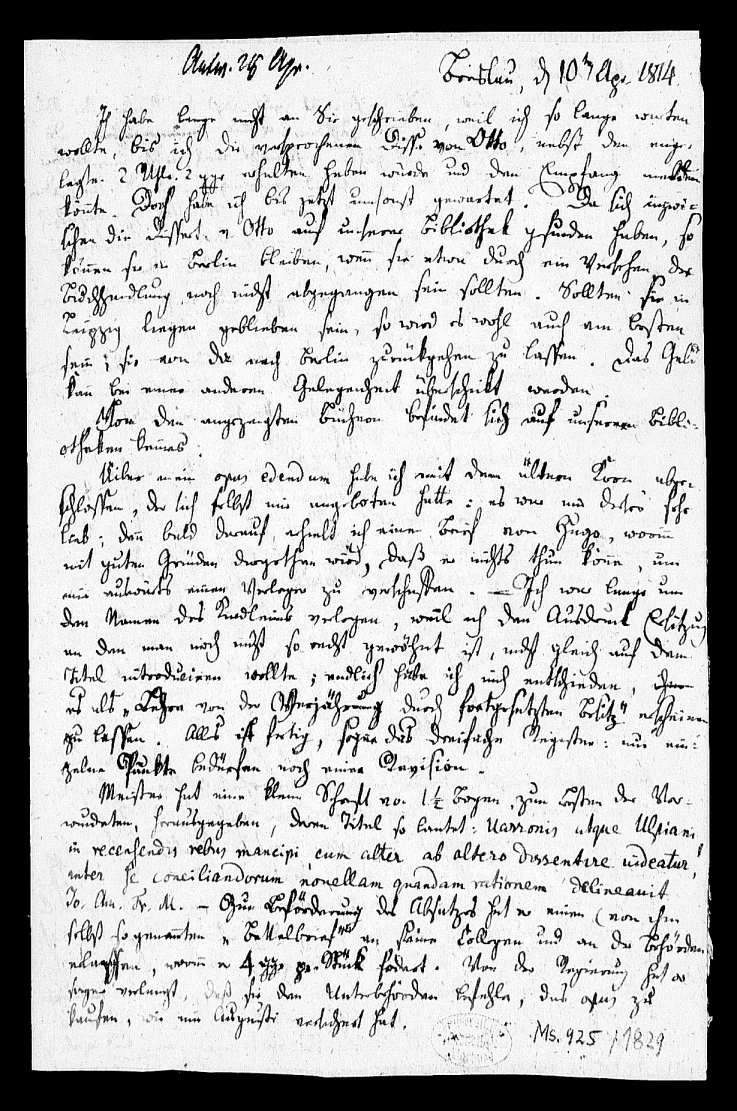 Antw. 25 Apr.
Breslau, d 10ten Apr. 1814.
Ich habe lange nicht an Sie geschrieben, weil ich so lange warten
wollte, bis ich die versprochenen Diss. von Otto, nebst den einge-
legten 2 Rthlr. 2 ggr erhalten haben würde und den Empfang melden
könnte. Doch habe ich bis jetzt umsonst gewartet. Da sich inzwi-
schen die Dissert. v Otto auf unserer Bibliothek gefunden haben, so
können sie in Berlin bleiben, wenn sie etwa durch ein Versehen der
Buchhandlung noch nicht abgegangen sein sollten. Sollten sie in
Leipzig liegen geblieben sein, so wird es wohl auch am besten
sein, sie von da nach Berlin zurückgehen zu lassen. Das Geld
kan bei einer anderen Gelegenheit überschickt werden.
Von den angezeigten Büchern befindet sich auf unseren Bibli-
otheken keines.
Über mein opus edendum habe ich mit dem ältern Korn abge-
schlossen, der sich selbst mir angeboten hatte: es war mir dieses sehr
lieb; den bald darauf erhielt ich einen Brief von Hugo, worin
mit guten Gründen dargethan wird, daß er nichts thun könne, um
mir auswärts einen Verleger zu verschaffen. — Ich war lange um
den Namen des Kindleins verlegen, weil ich den Ausdruck Ersitzung
an den man noch nicht so recht gewöhnt ist, nicht gleich auf dem
Titel introduciren wollte; endlich habe ich mich entschieden,
es als „Lehre von der Verjährung durch fortgesetzten Besitz" erscheinen
zu lassen. Alles ist fertig, sogar das dreifache Register: nur ein-
zelne Punkte bedürfen noch einer Revision.
Meister hat eine kleine Schrift von 1½ Bogen, zum Besten der Ver-
wundeten, herausgegeben, deren Titel so lautet: Varronis atque Ulpiani
in recensendis rebus mancipi, cum alter ab altero dissentire videatur,
inter se conciliandorum novellam quandam rationem delineavit
Jo. Chr. Fr. M. — Zur Beförderung des Absatzes hat er einen (von ihm
selbst so genannten „Bettelbrief") an seine Collegen und an die Behörden
erlassen, worin er 4 ggr. pr. Stück fodert. Von der Regierung hat er
sogar verlangt, daß sie den Unterbehörden befehle, das opus zu
kaufen, wie mir Augusti versichert hat.
Ms. 925 / 1829